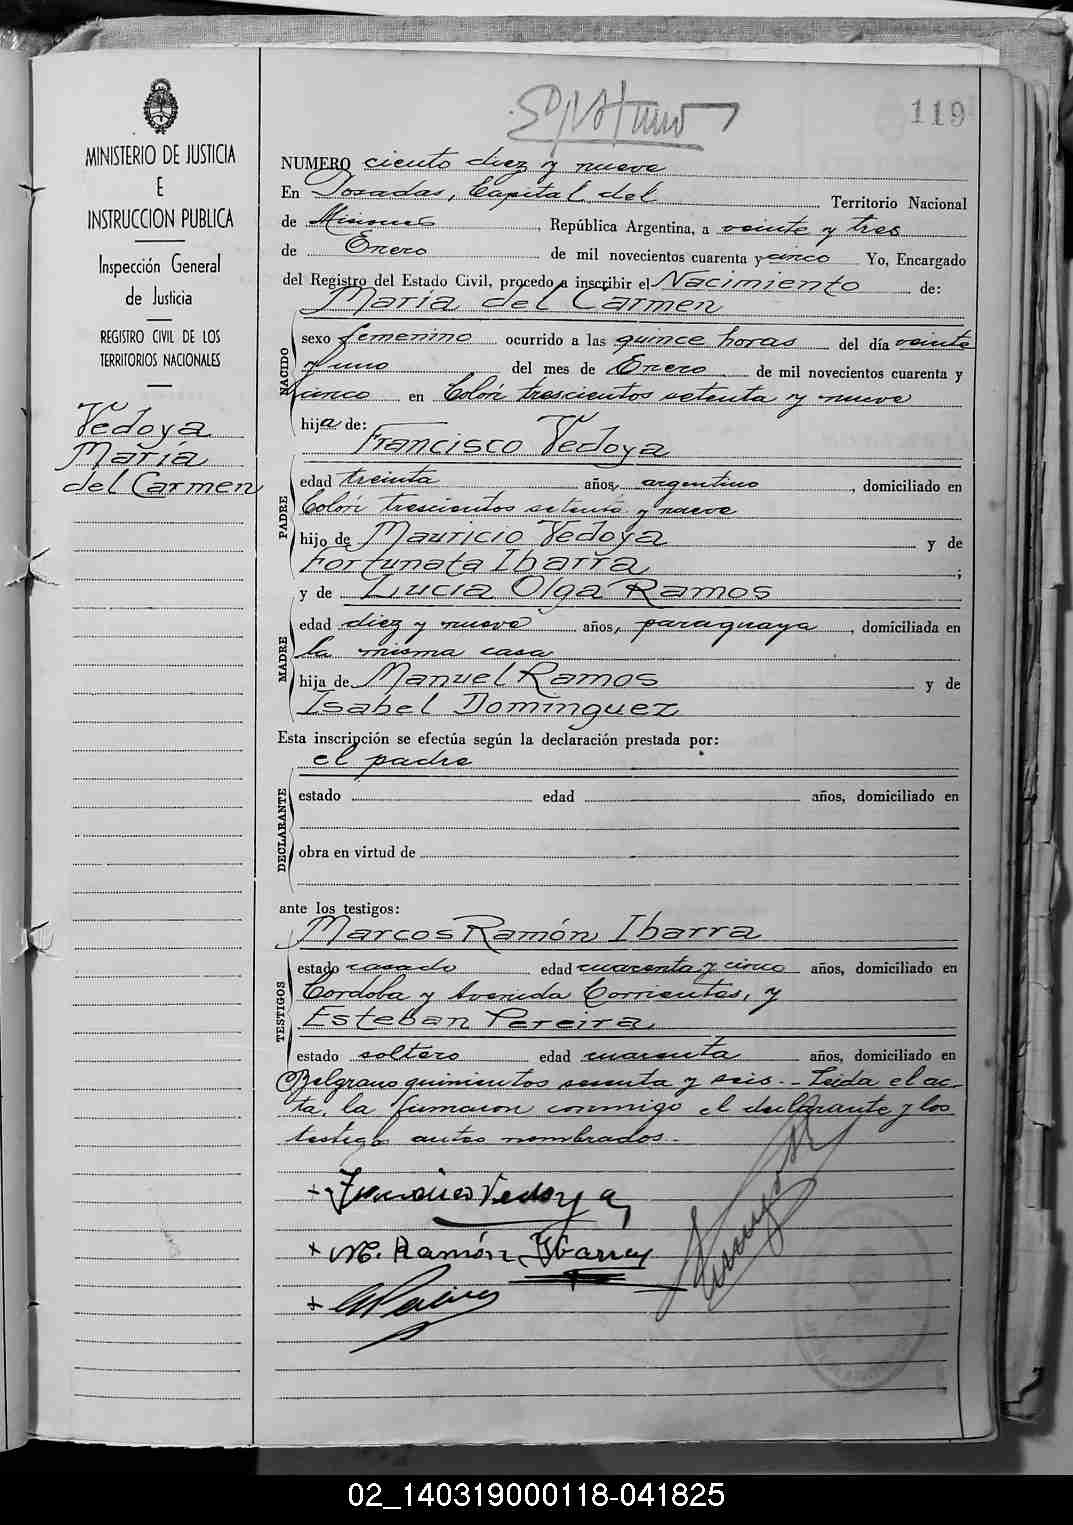 119
MINISTERIO DE JUSTICIA
E
INSTRUCCION PUBLICA
Inspección General
de Justicia
REGISTRO CIVIL DE LOS
TERRITORIOS NACIONALES
Vedoya
María
del Carmen
NUMERO ciento diez y nueve
En Posadas, Capital del Territorio Nacional
de Misiones, República Argentina, a veinte y tres
de Enero de mil novecientos cuarenta y cinco Yo, Encargado
del Registro del Estado Civil, procedo a inscribir el Nacimiento de:
María del Carmen
NACIDO
sexo femenino ocurrido a las quince horas del día veinte
y uno del mes de Enero de mil novecientos cuarenta y
cinco en Colón trescientos setenta y nueve
hija de:
Francisco Vedoya
PADRE
edad treinta años, argentino, domiciliado en
Colón trescientos setenta y nueve
hijo de Mauricio Vedoya y de
Fortunata Ibarra;
y de Lucia Olga Ramos
MADRE
edad diez y nueve años, paraguaya, domiciliada en
la misma casa
hija de Manuel Ramos y de
Isabel Dominguez
Esta inscripción se efectúa según la declaración prestada por:
el padre
DECLARANTE
estado edad años, domiciliado en
obra en virtud de
ante los testigos:
Marcos Ramón Ibarra
TESTIGOS
estado casado edad cuarenta y cinco años, domiciliado en
Cordoba y Avenida Corrientes, y
Esteban Pereira
estado soltero edad cuarenta años, domiciliado en
Belgrano quinientos sesenta y seis.- Leida el ac-
ta, la firmaron conmigo el declarante y los
testigos antes nombrados.-
+ Francisco Vedoya
+ M. Ramón Ibarra
02_140319000118-041825